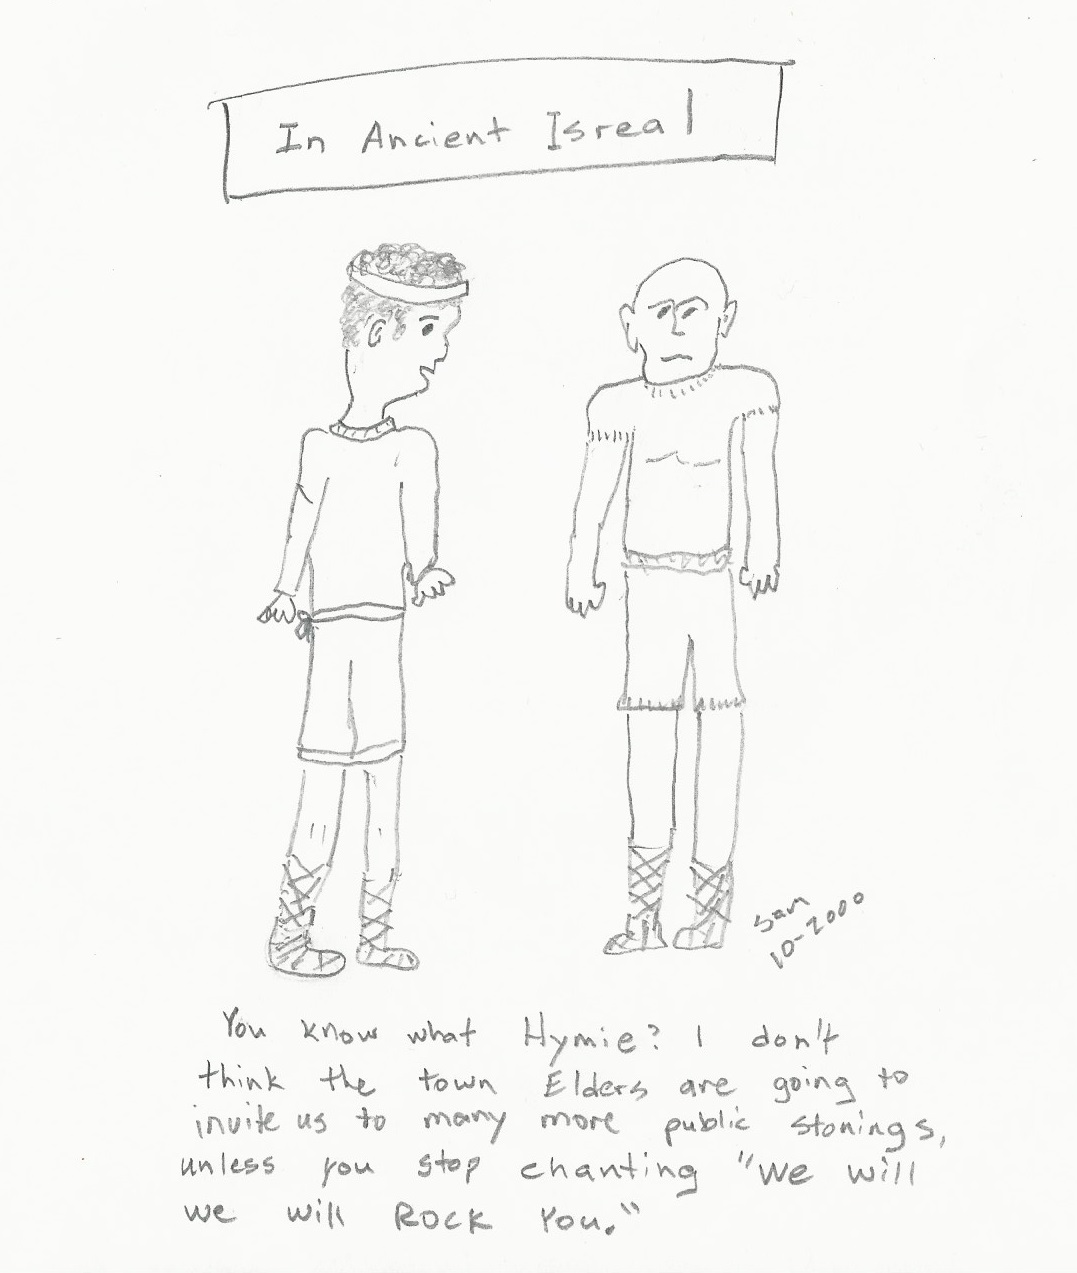 In Ancient Isreal
Sam
10-2000
You know what Hymie? I don't
think the town Elders are going to
invite us to many more public stonings,
unless you stop chanting "We will
we will ROCK You."